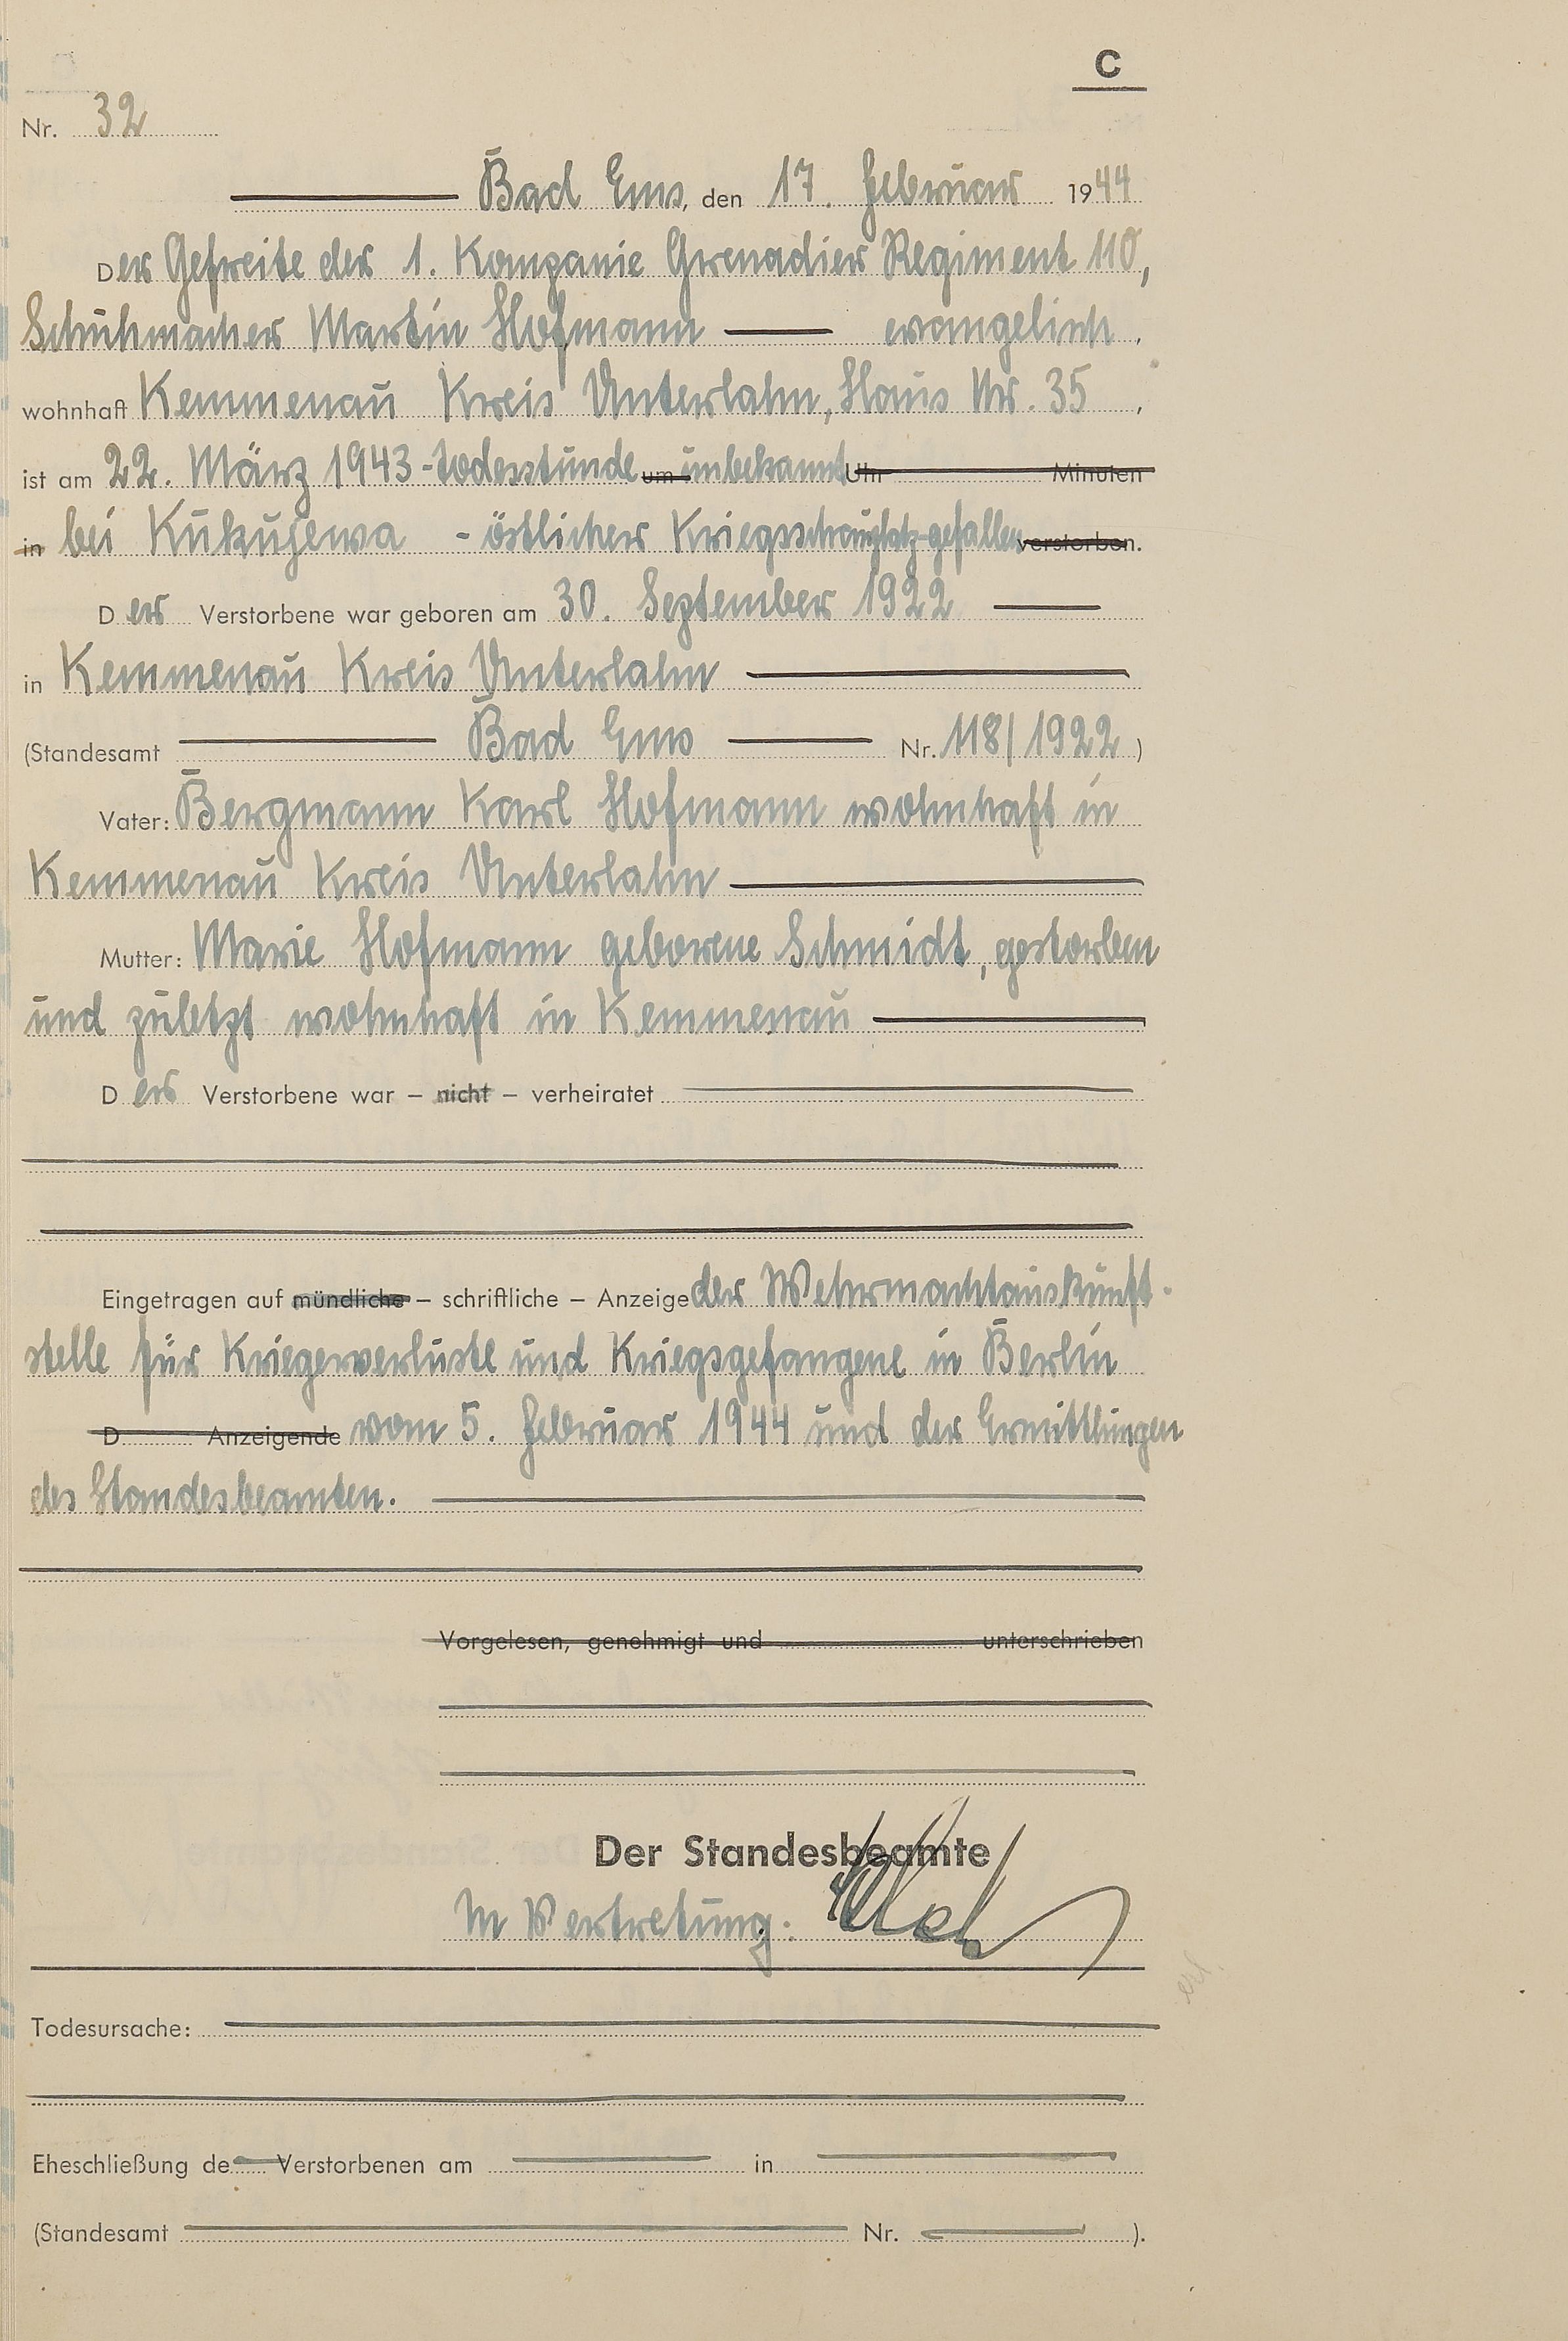 C
Nr. 32
Bad Ems, den 17. Februar 1944
Der Gefreite der 1. Kompanie Grenadier Regiment 110,
Schuhmacher Martin Hofmann evangelisch,
wohnhaft Kemmenau Kreis Unterlahn, Haus Nr. 35,
ist am 22. März 1943 - Todesstunde um unbekannt Uhr Minuten
in bei Kukujewa - östlicher Kriegsschauplatz - gefallen verstorben.
Der Verstorbene war geboren am 30. September 1922
in Kemmenau Kreis Unterlahn
(Standesamt Bad Ems Nr. 118/1922)
Vater: Bergmann Karl Hofmann wohnhaft in
Kemmenau Kreis Unterlahn
Mutter: Marie Hofmann geborene Schmidt, gestorben
und zuletzt wohnhaft in Kemmenau
Der Verstorbene war – nicht – verheiratet
Eingetragen auf mündliche – schriftliche – Anzeige der Wehrmachtauskunft-
stelle für Kriegerverluste und Kriegsgefangene in Berlin
D Anzeigende vom 5. Februar 1944 und der Ermittlungen
des Standesbeamten.
Vorgelesen, genehmigt und unterschrieben
Der Standesbeamte
In Vertretung:
Todesursache:
Eheschließung de Verstorbenen am in
(Standesamt Nr. ).